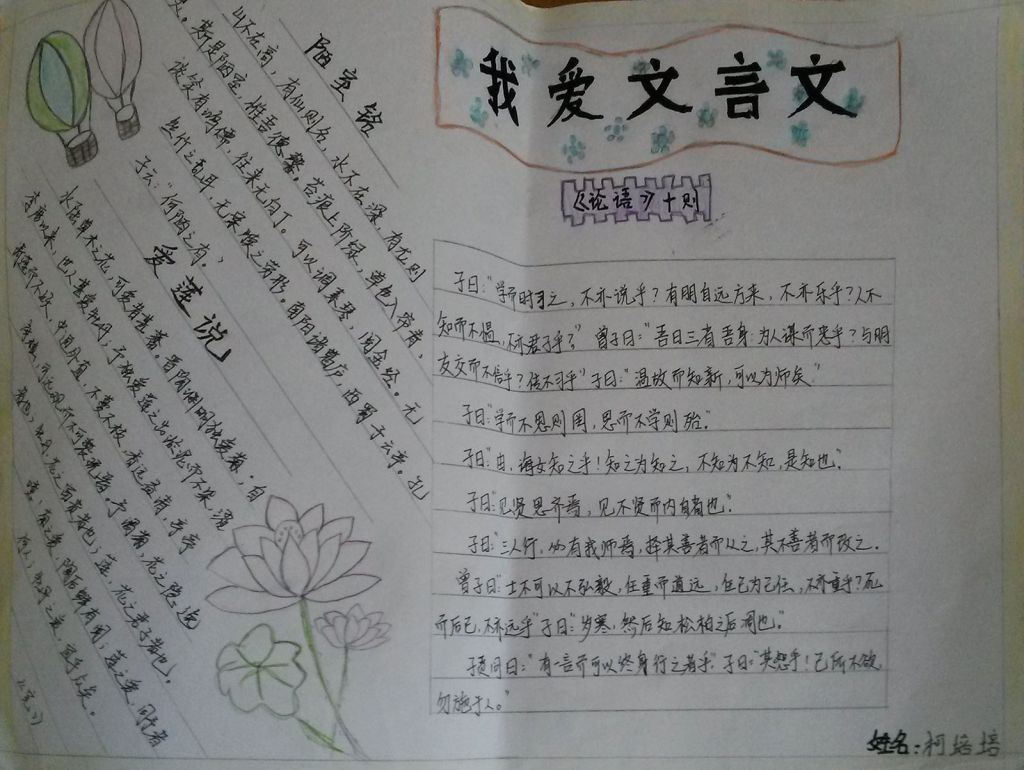 我爱文言文
《论语》十则
子曰:“学而时习之,不亦说乎?有朋自远方来,不亦乐乎?人不
知而不愠,不亦君子乎?” 曾子曰:“吾日三省吾身:为人谋而不忠乎?与朋
友交而不信乎?传不习乎” 子曰:“温故而知新,可以为师矣.”
子曰:“学而不思则罔,思而不学则殆.”
子曰:“由,诲女知之乎!知之为知之,不知为不知,是知也.”
子曰:“见贤思齐焉,见不贤而内自省也.”
子曰:“三人行,必有我师焉,择其善者而从之,其不善者而改之.
曾子曰:“士不可以不弘毅,任重而道远,仁已为己任,不亦重乎?死
而后已,不亦远乎” 子曰:“岁寒,然后知松柏之后凋也.”
子贡问曰:“有一言而可以终身行之者乎” 子曰:“其恕乎!己所不欲
勿施于人.”
姓名:柯培培
陋室铭
山不在高,有仙则名,水不在深,有龙则
灵。斯是陋室,惟吾德馨。苔痕上阶绿,草色入帘青,
谈笑有鸿儒,往来无白丁。可以调素琴,阅金经。无
丝竹之乱耳,无案牍之劳形。南阳诸葛庐,西蜀子云亭。孔
子云:“何陋之有.”
爱莲说
水陆草木之花,可爱者甚蕃。晋陶渊明独爱菊.自
李唐以来,世人甚爱牡丹,予独爱莲之出淤泥而不染,濯
清涟而不妖,中通外直,不蔓不枝,香远益清,亭亭